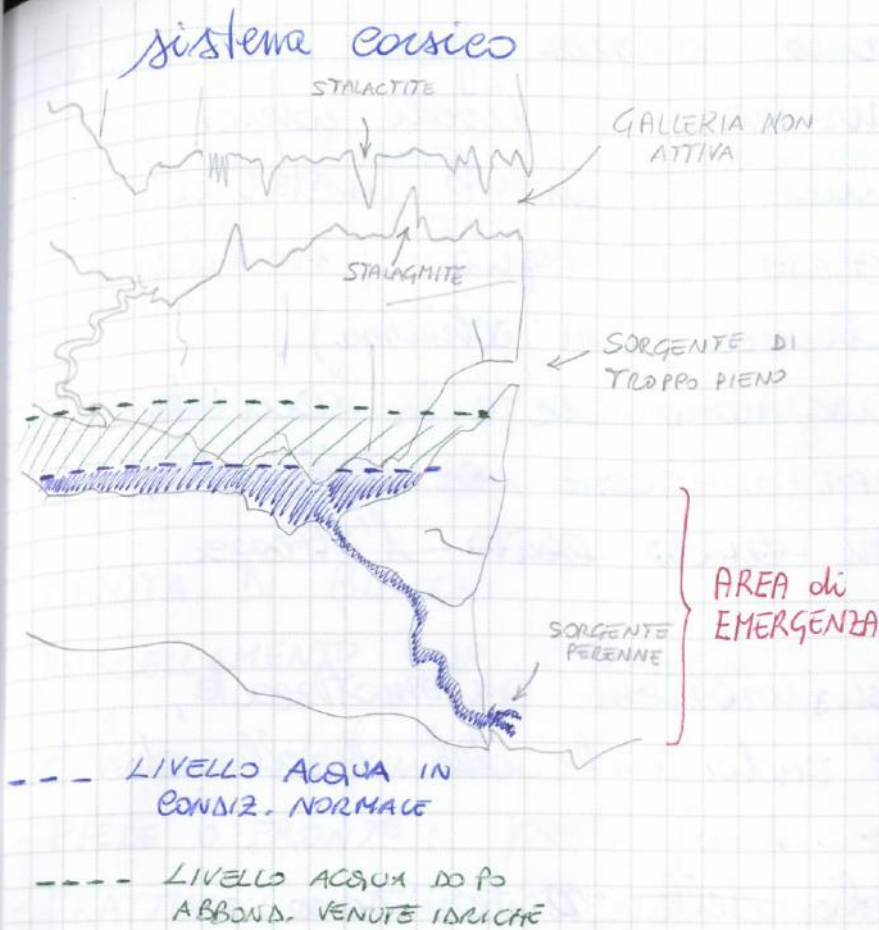 sistema carsico
STALACTITE
GALLERIA NON
ATTIVA
STALAGMITE
SORGENTE DI
TROPPO PIENO
AREA di
EMERGENZA
SORGENTE
PERENNE
LIVELLO ACQUA IN
CONDIZ. NORMALE
LIVELLO ACQUA DOPO
ABBOND. VENUTE IDRICHE